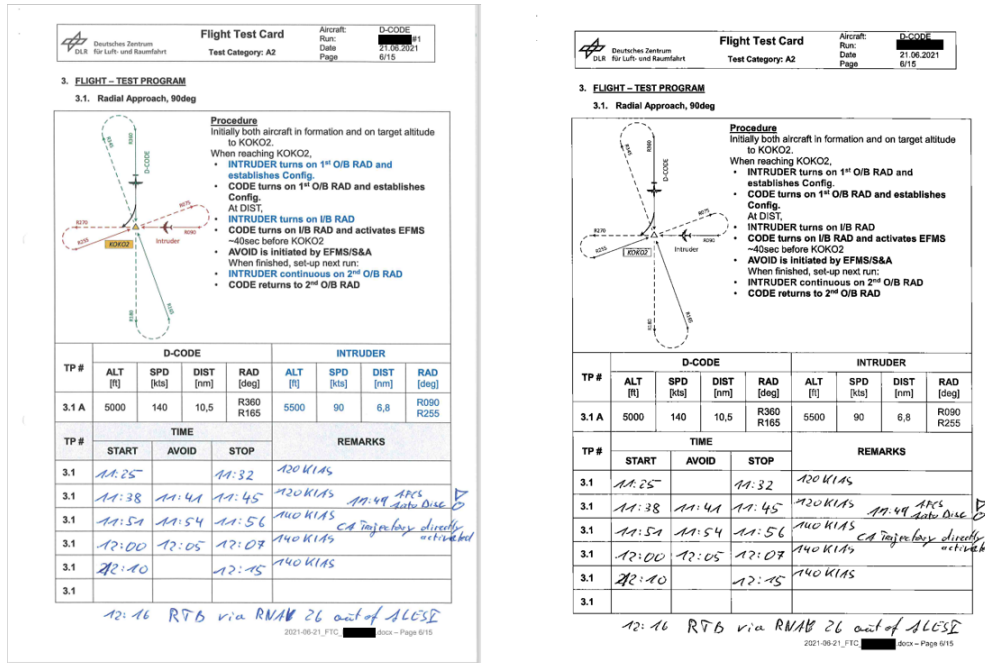 DLR
Deutsches Zentrum
für Luft- und Raumfahrt
Flight Test Card
Test Category: A2
Aircraft: D-CODE
Run: #1
Date 21.06.2021
Page 6/15
3. FLIGHT – TEST PROGRAM
3.1. Radial Approach, 90deg
R345
R360
D-CODE
R075
R270
R090
R255
KOKO2
Intruder
R180
R165
Procedure
Initially both aircraft in formation and on target altitude
to KOKO2.
When reaching KOKO2,
• INTRUDER turns on 1st O/B RAD and
establishes Config.
• CODE turns on 1st O/B RAD and establishes
Config.
At DIST,
• INTRUDER turns on I/B RAD
• CODE turns on I/B RAD and activates EFMS
~40sec before KOKO2
• AVOID is initiated by EFMS/S&A
When finished, set-up next run:
• INTRUDER continuous on 2nd O/B RAD
• CODE returns to 2nd O/B RAD
TP # D-CODE INTRUDER
ALT [ft] SPD [kts] DIST [nm] RAD [deg] ALT [ft] SPD [kts] DIST [nm] RAD [deg]
3.1 A 5000 140 10,5 R360 R165 5500 90 6,8 R090 R255
TP # TIME REMARKS
START AVOID STOP
3.1 11:25 11:32 120 KIAS
3.1 11:38 11:41 11:45 120 KIAS 11:49 APCS into Disc
3.1 11:51 11:54 11:56 140 KIAS CA Trajectory directly activated
3.1 12:00 12:05 12:07 140 KIAS
3.1 12:10 12:15 140 KIAS
3.1
12:16 RTB via RNAV 26 out of ALESI
2021-06-21_FTC_ .docx – Page 6/15
DLR
Deutsches Zentrum
für Luft- und Raumfahrt
Flight Test Card
Test Category: A2
Aircraft: D-CODE
Run:
Date 21.06.2021
Page 6/15
3. FLIGHT – TEST PROGRAM
3.1. Radial Approach, 90deg
R345
R360
D-CODE
R075
R270
R090
R255
KOKO2
Intruder
R180
R165
Procedure
Initially both aircraft in formation and on target altitude
to KOKO2.
When reaching KOKO2,
• INTRUDER turns on 1st O/B RAD and
establishes Config.
• CODE turns on 1st O/B RAD and establishes
Config.
At DIST,
• INTRUDER turns on I/B RAD
• CODE turns on I/B RAD and activates EFMS
~40sec before KOKO2
• AVOID is initiated by EFMS/S&A
When finished, set-up next run:
• INTRUDER continuous on 2nd O/B RAD
• CODE returns to 2nd O/B RAD
TP # D-CODE INTRUDER
ALT [ft] SPD [kts] DIST [nm] RAD [deg] ALT [ft] SPD [kts] DIST [nm] RAD [deg]
3.1 A 5000 140 10,5 R360 R165 5500 90 6,8 R090 R255
TP # TIME REMARKS
START AVOID STOP
3.1 11:25 11:32 120 KIAS
3.1 11:38 11:41 11:45 120 KIAS 11:49 APCS into Disc
3.1 11:51 11:54 11:56 140 KIAS CA Trajectory directly activated
3.1 12:00 12:05 12:07 140 KIAS
3.1 12:10 12:15 140 KIAS
3.1
12:16 RTB via RNAV 26 out of ALESI
2021-06-21_FTC_ .docx – Page 6/15